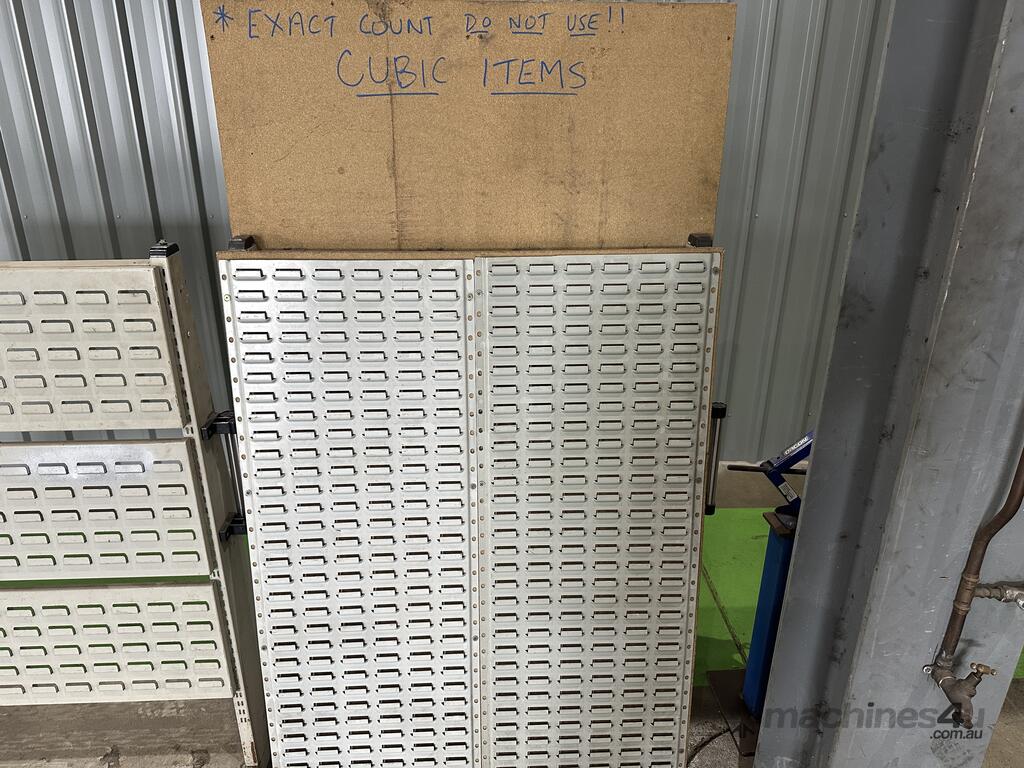 * EXACT COUNT DO NOT USE!!
CUBIC ITEMS
machines4u
.com.au